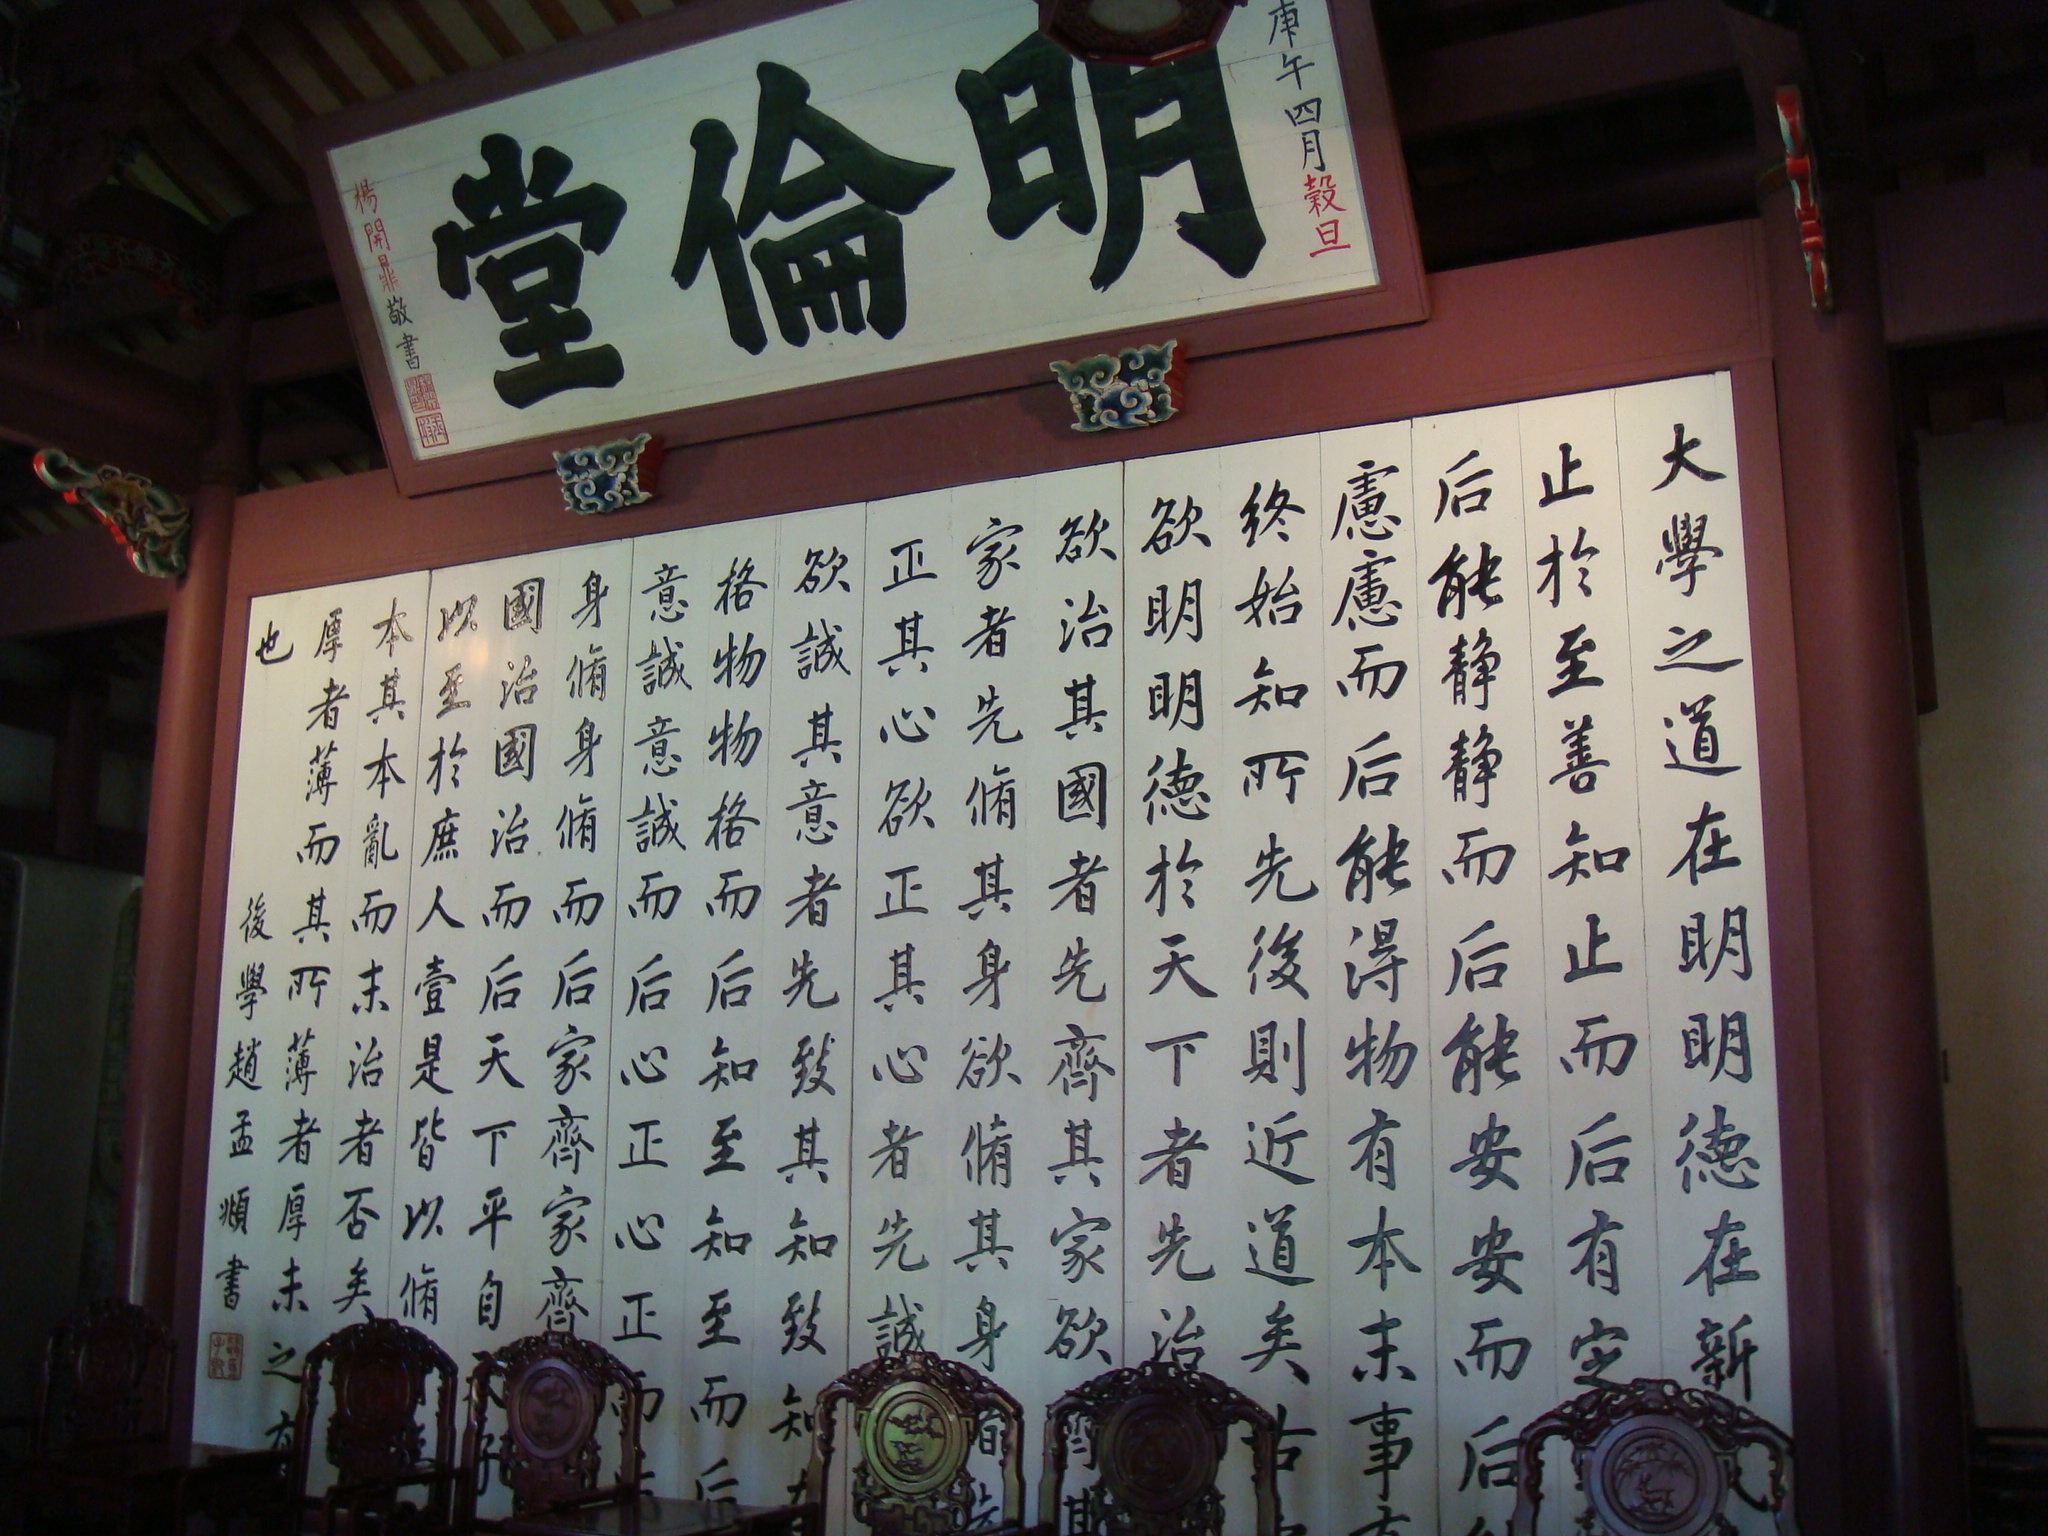 庚午四月穀旦
明倫堂
楊開鼎敬書
大學之道在明明德在新
止於至善知止而后有定
后能静静而后能安安而后
慮慮而后能得物有本末事
終始知所先後則近道矣古
欲明明德於天下者先治
欲治其國者先齊其家欲齊其
家者先脩其身欲脩其身者
正其心欲正其心者先誠
欲誠其意者先致其知致知
格物物格而后知至知至而后
意誠意誠而后心正心正而
身脩身脩而后家齊家齊
國治國治而后天下平自天子
以至於庶人壹是皆以脩
本其本亂而末治者否矣
厚者薄而其所薄者厚未之有
也
後學趙孟頫書